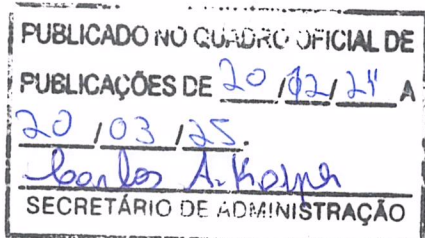 PUBLICADO NO QUADRO OFICIAL DE
PUBLICAÇÕES DE 20 / 12 / 24 A
20 / 03 / 25.
Carlos A.
SECRETÁRIO DE ADMINISTRAÇÃO